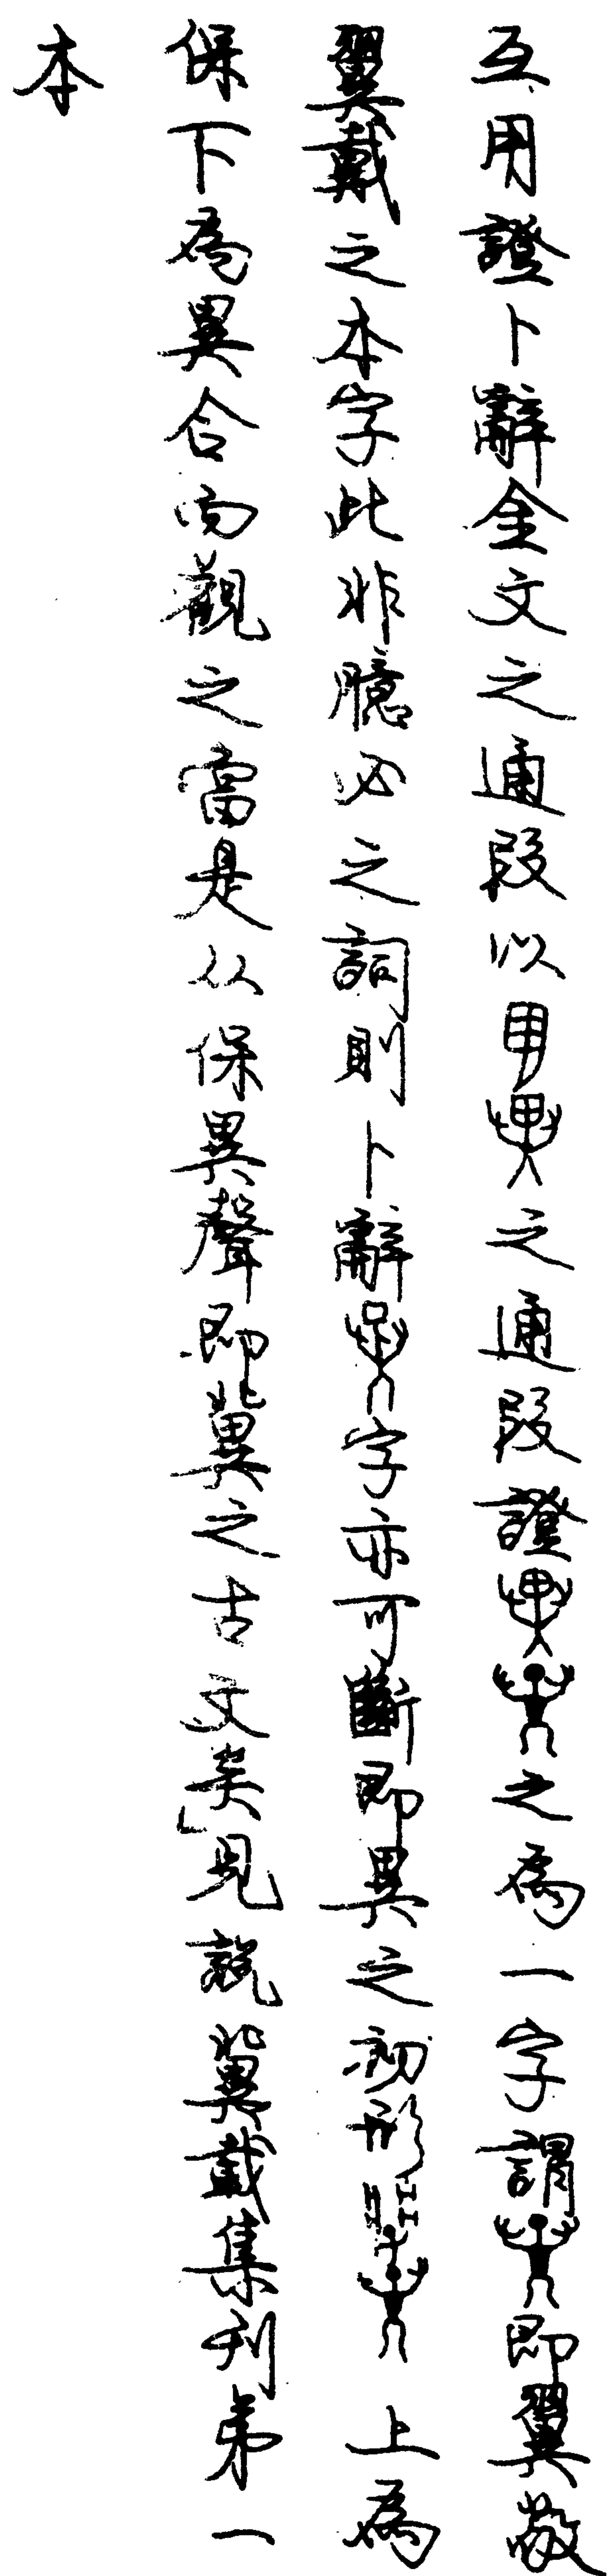 互用證卜辭金文之通叚以之通叚證之為一字謂即翼敬
翼戴之本字此非臆必之詞則卜辭字亦可斷即異之初形上為
保下為異合而觀之當是从保異聲即冀之古文矣」見說冀載集刊第一
本